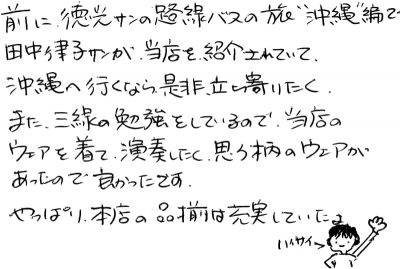 前に、徳光サンの路線バスの旅"沖縄"編で
田中律子サンが、当店を、紹介されていて、
沖縄へ行くなら、是非、立ち寄りたく、
また、三線の勉強をしているので、当店の
ウェアを着て、演奏したく、思う柄のウェアが
あったので良かったです。
やっぱり、本店の品揃は充実していたよ
ハイサイ